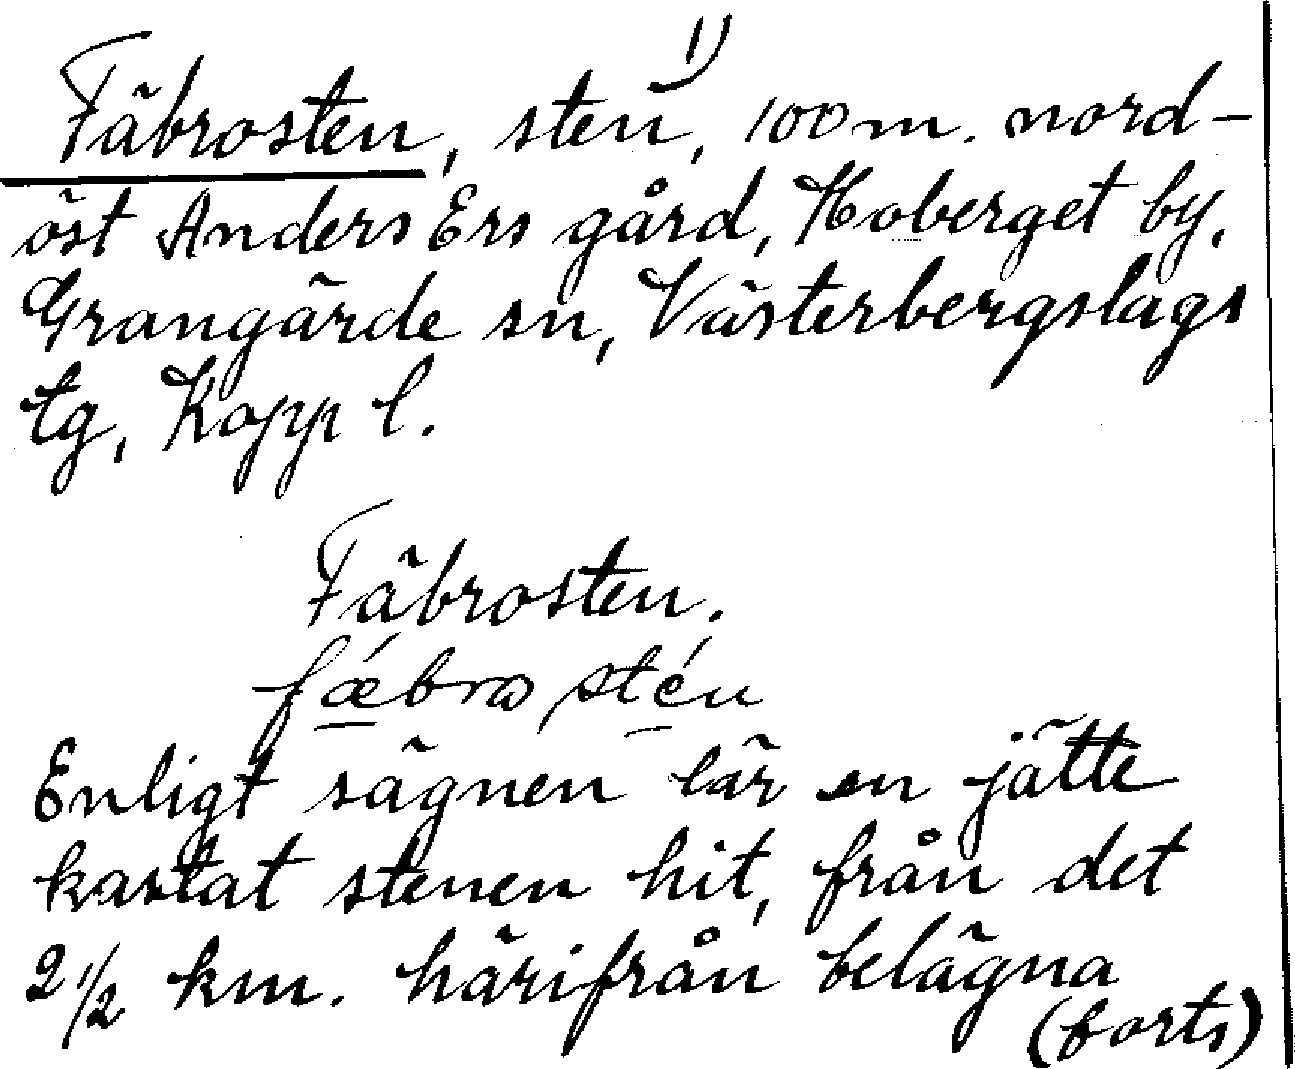 Fäbrosten, sten 1), 100 m. nord-
öst Anders Ers gård, Hoberget by,
Grangärde sn, Västerbergslags
tg, Kopp l.
Fäbrosten.
fǽbro sten
Enligt sägnen lär en jätte
kastat stenen hit, från det
2 1/2 km. härifrån belägna
(forts)